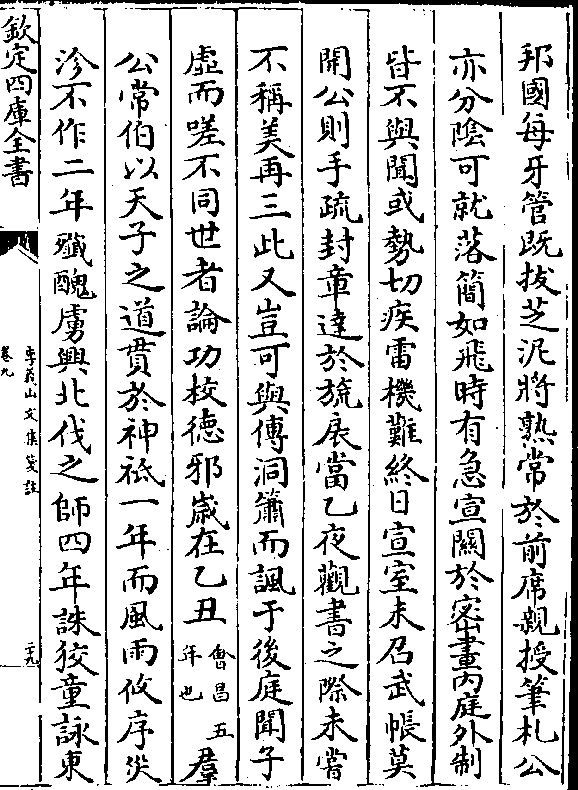 邦國每牙管既拔芝泥將熟常於前席親授筆札公
亦分陰可就落簡如飛時有急宣關於密畫内庭外制
皆不與聞或勢切疾雷機難終日宣室未召武帳莫
開公則手疏封章達於旒扆當乙夜觀書之際未嘗
不稱美再三此又豈可與傅洞簫而諷于後庭聞子
虛而嗟不同世者論功校德邪歲在乙丑會昌五年也羣
公常伯以天子之道貫於神祗一年而風雨攸序災
沴不作二年殲醜虜興北伐之師四年誅狡童詠東
欽定四庫全書
李義山文集箋註
卷九
二十九